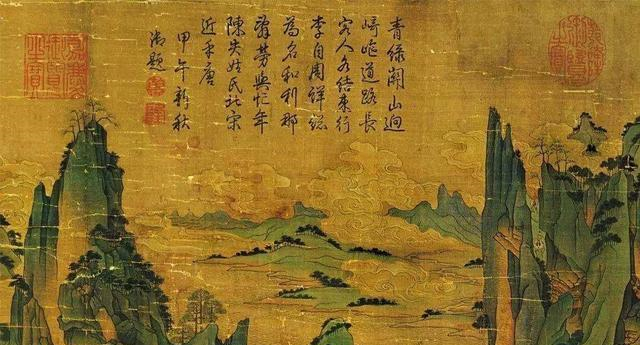 青綠關山迥
崎嶇道路長
客人各結束行
李自周詳總
為名和利那
辭勞與忙年
陳失姓氏北宋
近乎唐
甲午新秋
御題